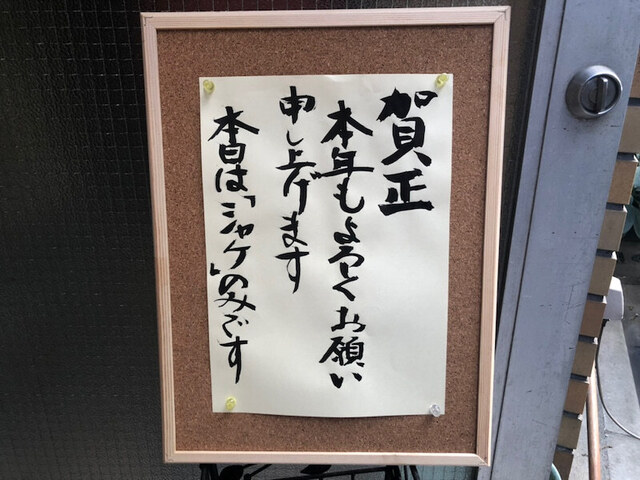 賀正
本年もよろしくお願い
申し上げます
本日は「シャケ」のみです